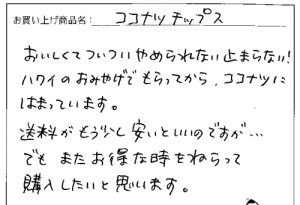 お買い上げ商品名： ココナツチップス
おいしくてついついやめられない止まらない!
ハワイのおみやげでもらってから、ココナツに
はまっています。
送料がもう少し安いといいのですが…
でも またお得な時をねらって
購入したいと思います。